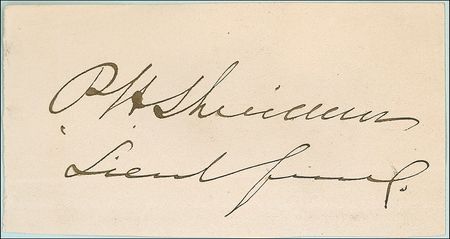 P H Sheridan
Lieut Genl.